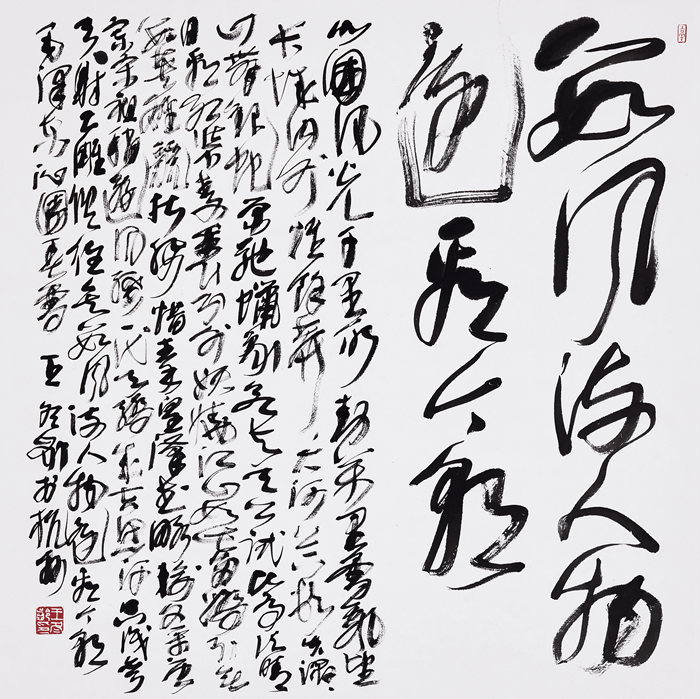 數風流人物
還看今朝
北國風光千里冰封萬里雪飄望
長城內外惟餘莽莽大河上下頓失滔滔
山舞銀蛇原馳蠟象欲與天公試比高須晴
日看紅裝素裹分外妖嬈江山如此多嬌引無
數英雄競折腰惜秦皇漢武略輸文采唐
宗宋祖稍遜風騷一代天驕成吉思汗只識彎
弓射大雕俱往矣數風流人物還看今朝
毛澤東沁園春雪 王冬齡於杭州